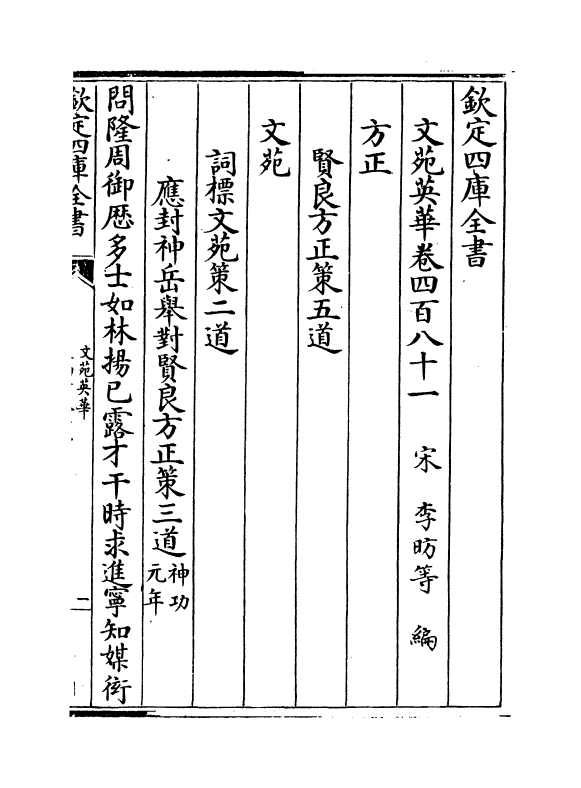 欽定四庫全書
文苑英華卷四百八十一 宋 李昉等 編
方正
賢良方正策五道
文苑
詞標文苑策二道
應封神岳舉對賢良方正策三道 神功元年
問隆周御歴多士如林揚已露才干時求進寧知媒衒
欽定四庫全書
文苑英華
二